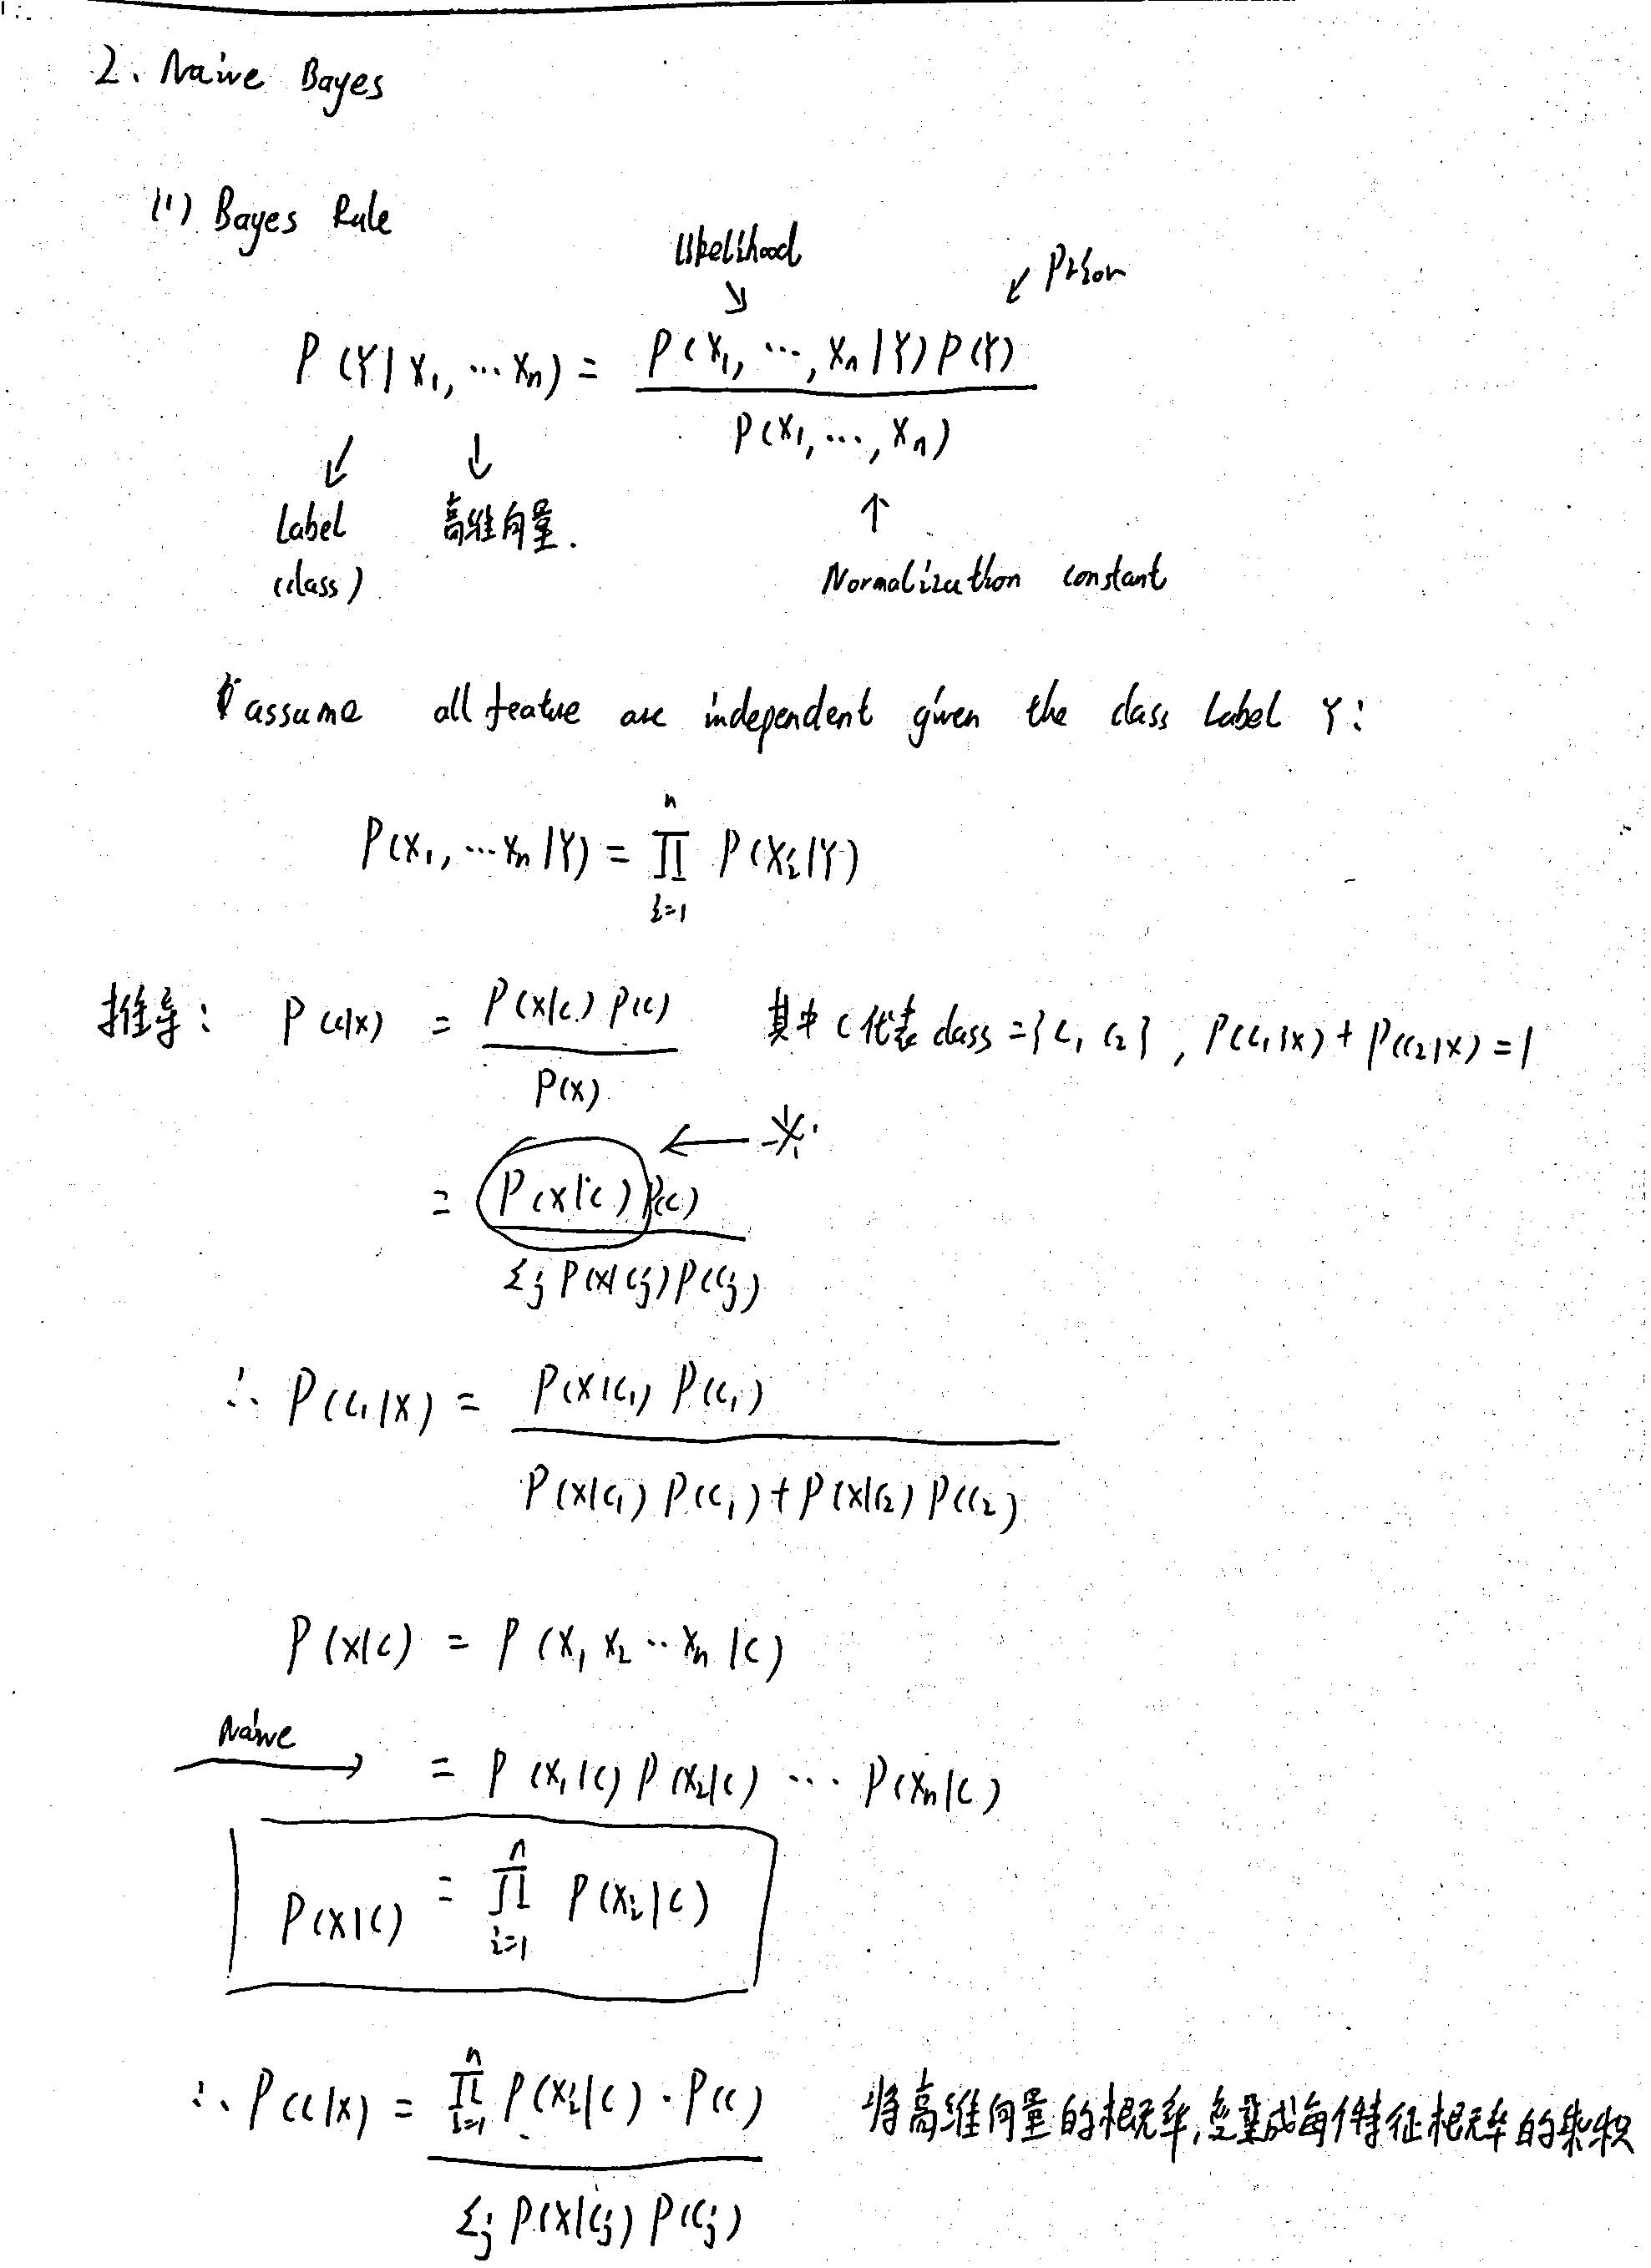 2. Naive Bayes
(1) Bayes Rule
Likelihood
↓
↙ Prior
P(Y|X₁, ⋯ Xₙ) = P(X₁, ⋯, Xₙ|Y) P(Y) / P(X₁, ⋯, Xₙ)
↙ ↓ ↑
Label (class)
高维向量.
Normalization constant
assume all feature are independent given the class Label Y:
P(X₁, ⋯ Xₙ|Y) = ∏ⁿᵢ₌₁ P(Xᵢ|Y)
推导: P(C|X) = P(X|C) P(C) / P(X) 其中C代表class = {C₁ C₂}, P(C₁|X) + P(C₂|X) = 1
= P(X|C) P(C) / Σⱼ P(X|Cⱼ) P(Cⱼ) ← ※
∴ P(C₁|X) = P(X|C₁) P(C₁) / P(X|C₁) P(C₁) + P(X|C₂) P(C₂)
P(X|C) = P(X₁ X₂ ⋯ Xₙ|C)
Naive → = P(X₁|C) P(X₂|C) ⋯ P(Xₙ|C)
P(X|C) = ∏ⁿᵢ₌₁ P(Xᵢ|C)
∴ P(C|X) = ∏ⁿᵢ₌₁ P(Xᵢ|C) · P(C) / Σⱼ P(X|Cⱼ) P(Cⱼ) 将高维向量的概率,变量成每个特征概率的乘积